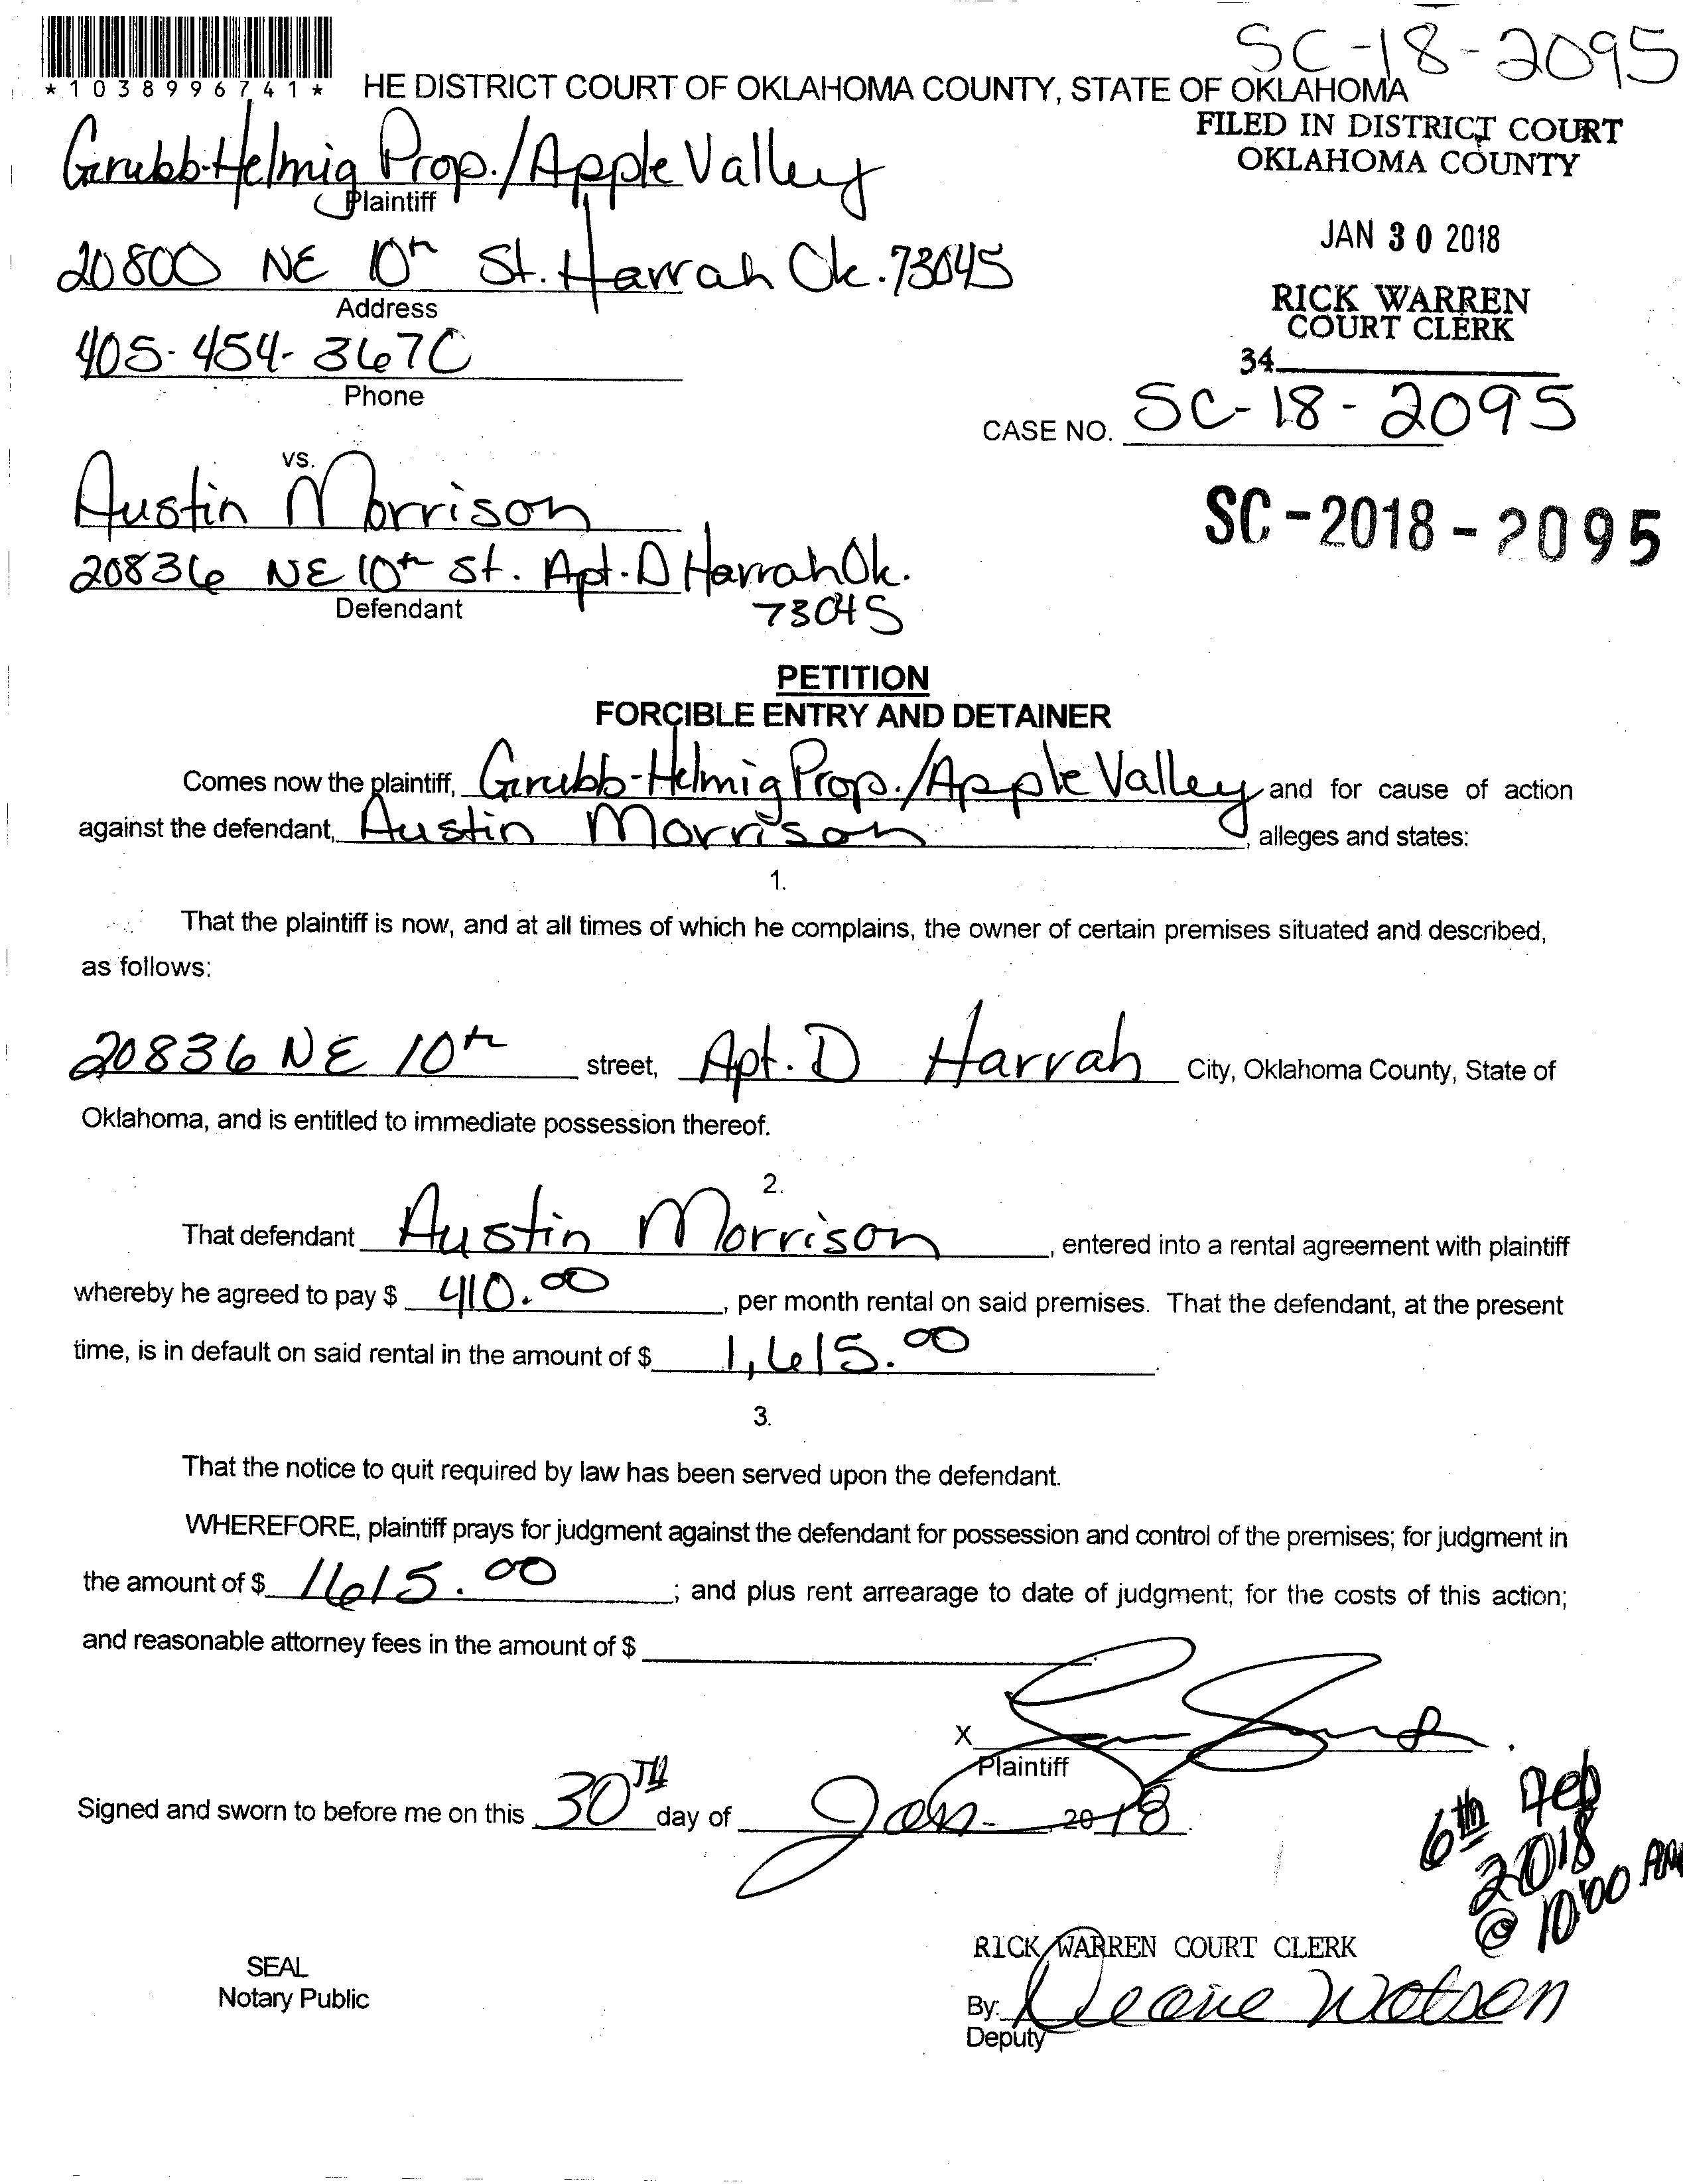 SC-18-2095
*1038996741*
HE DISTRICT COURT OF OKLAHOMA COUNTY, STATE OF OKLAHOMA
FILED IN DISTRICT COURT
OKLAHOMA COUNTY
Grubb-Helmig Prop./Apple Valley
Plaintiff
JAN 30 2018
20800 NE 10th St. Harrah Ok. 73045
Address
RICK WARREN
COURT CLERK
405-454-3670
Phone
34
CASE NO. SC-18-2095
vs.
Austin Morrison
SC-2018-2095
20836 NE 10th St. Apt. D Harrah Ok.
73045
Defendant
PETITION
FORCIBLE ENTRY AND DETAINER
Comes now the plaintiff, Grubb-Helmig Prop./Apple Valley and for cause of action
against the defendant, Austin Morrison, alleges and states:
1.
That the plaintiff is now, and at all times of which he complains, the owner of certain premises situated and described,
as follows:
20836 NE 10th street, Apt. D Harrah City, Oklahoma County, State of
Oklahoma, and is entitled to immediate possession thereof.
2.
That defendant Austin Morrison, entered into a rental agreement with plaintiff
whereby he agreed to pay $ 410.00, per month rental on said premises. That the defendant, at the present
time, is in default on said rental in the amount of $ 1,615.00.
3.
That the notice to quit required by law has been served upon the defendant.
WHEREFORE, plaintiff prays for judgment against the defendant for possession and control of the premises; for judgment in
the amount of $ 1615.00; and plus rent arrearage to date of judgment; for the costs of this action;
and reasonable attorney fees in the amount of $
X
Plaintiff
Signed and sworn to before me on this 30TH day of Jan-, 2018.
6th Feb
2018
@ 10:00 AM
RICK WARREN COURT CLERK
SEAL
Notary Public
By: Deane Watson
Deputy